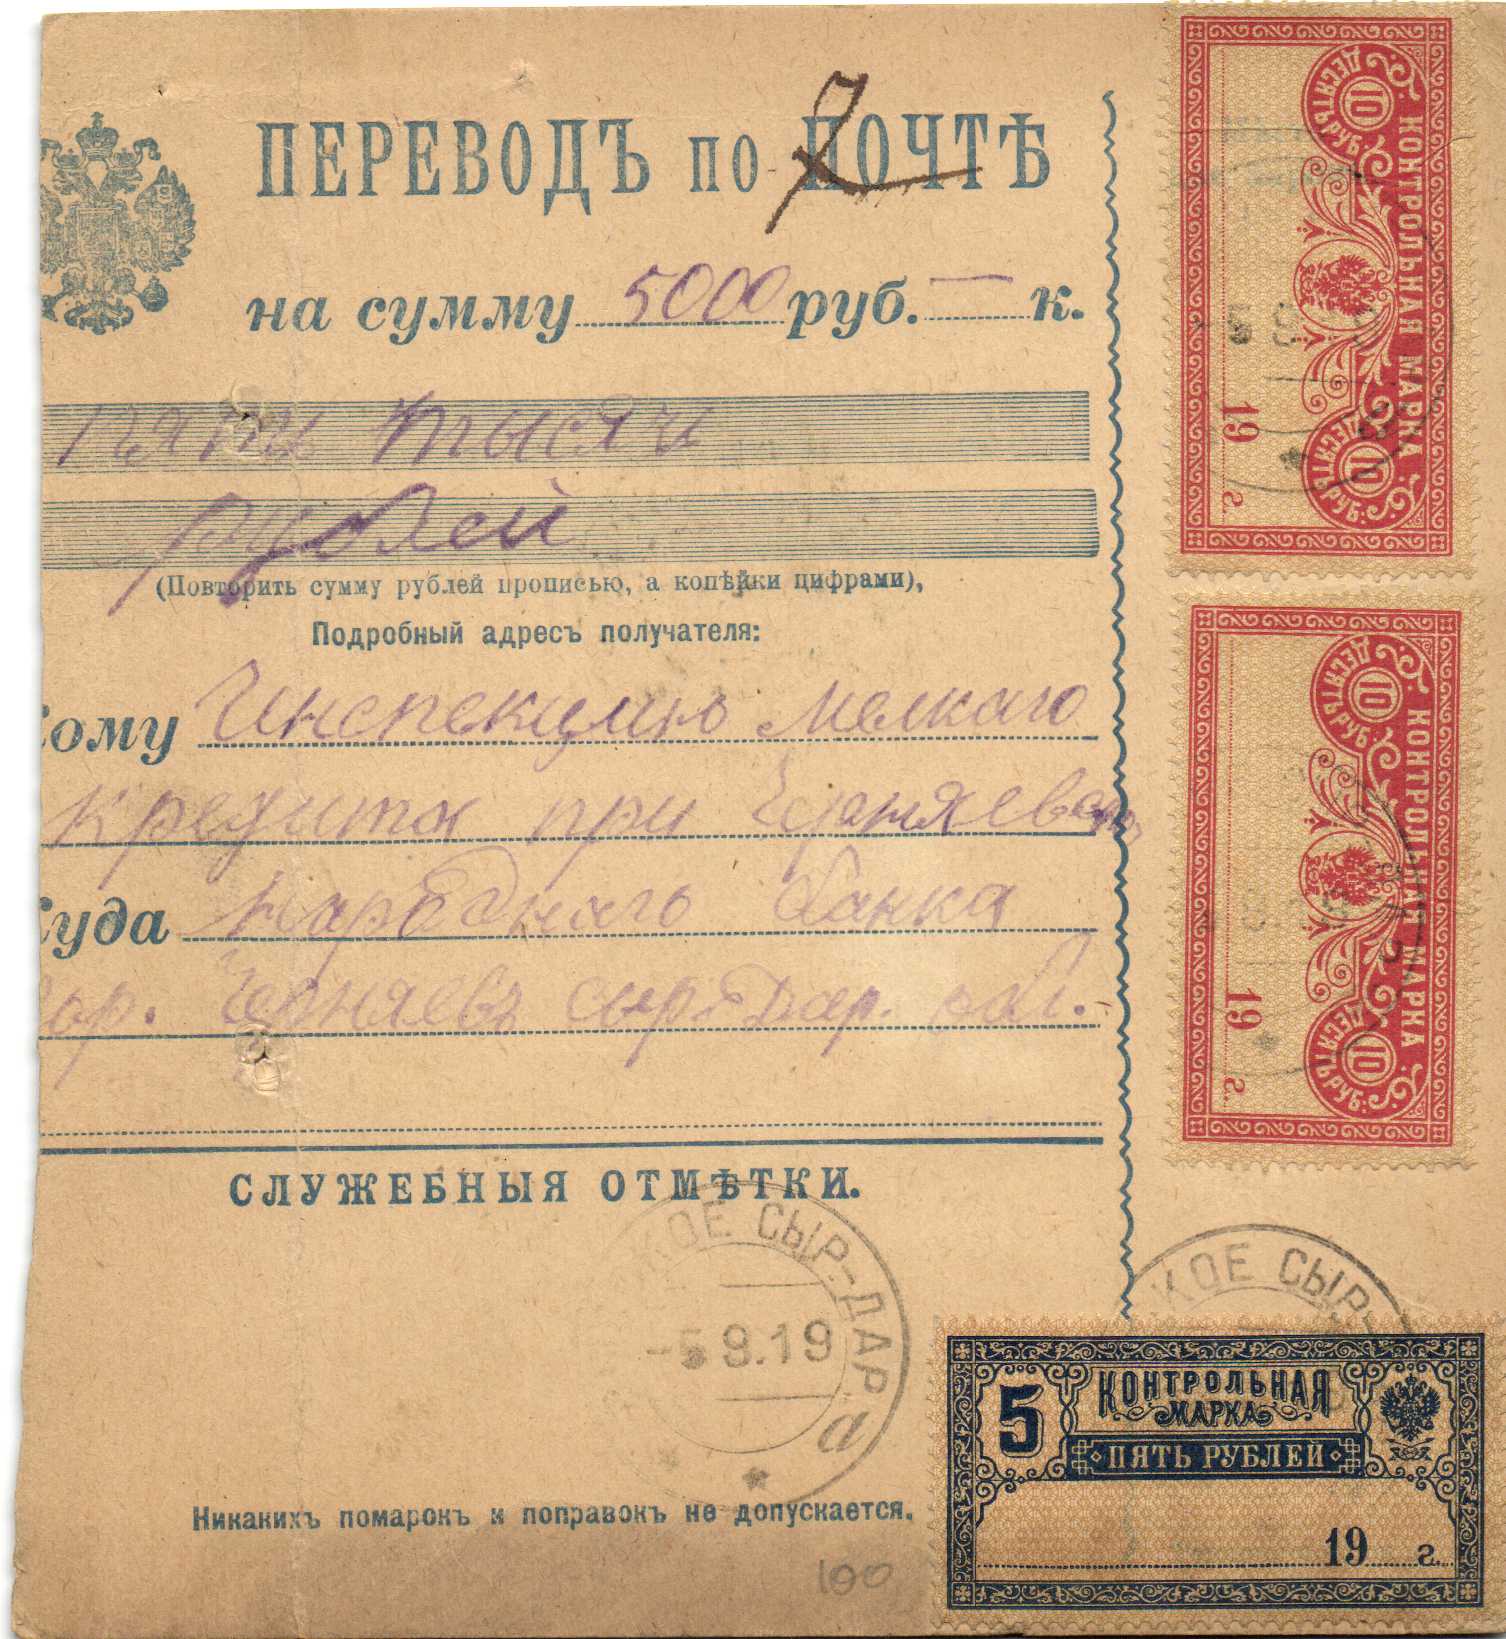 ПЕРЕВОДЪ по ПОЧТѢ
на сумму 5000 руб. — к.
пять тысячъ
рублей
(Повторить сумму рублей прописью, а копѣйки цифрами),
Подробный адресъ получателя:
кому Инспекцию мелкаго
кредита при Черняевском
куда народного банка
гор. Черняевъ сыръ-дар. обл.
СЛУЖЕБНЫЯ ОТМѢТКИ.
КОЕ СЫР-ДАР
-5 9.19
а
Никакихъ помарокъ и поправокъ не допускается.
100
КОНТРОЛЬНАЯ МАРКА
10 ДЕСЯТЬ РУБ.
10 ДЕСЯТЬ РУБ.
19 г.
КОНТРОЛЬНАЯ МАРКА
10 ДЕСЯТЬ РУБ.
10 ДЕСЯТЬ РУБ.
19 г.
КОЕ СЫР-
5 КОНТРОЛЬНАЯ
МАРКА
ПЯТЬ РУБЛЕЙ
19 г.